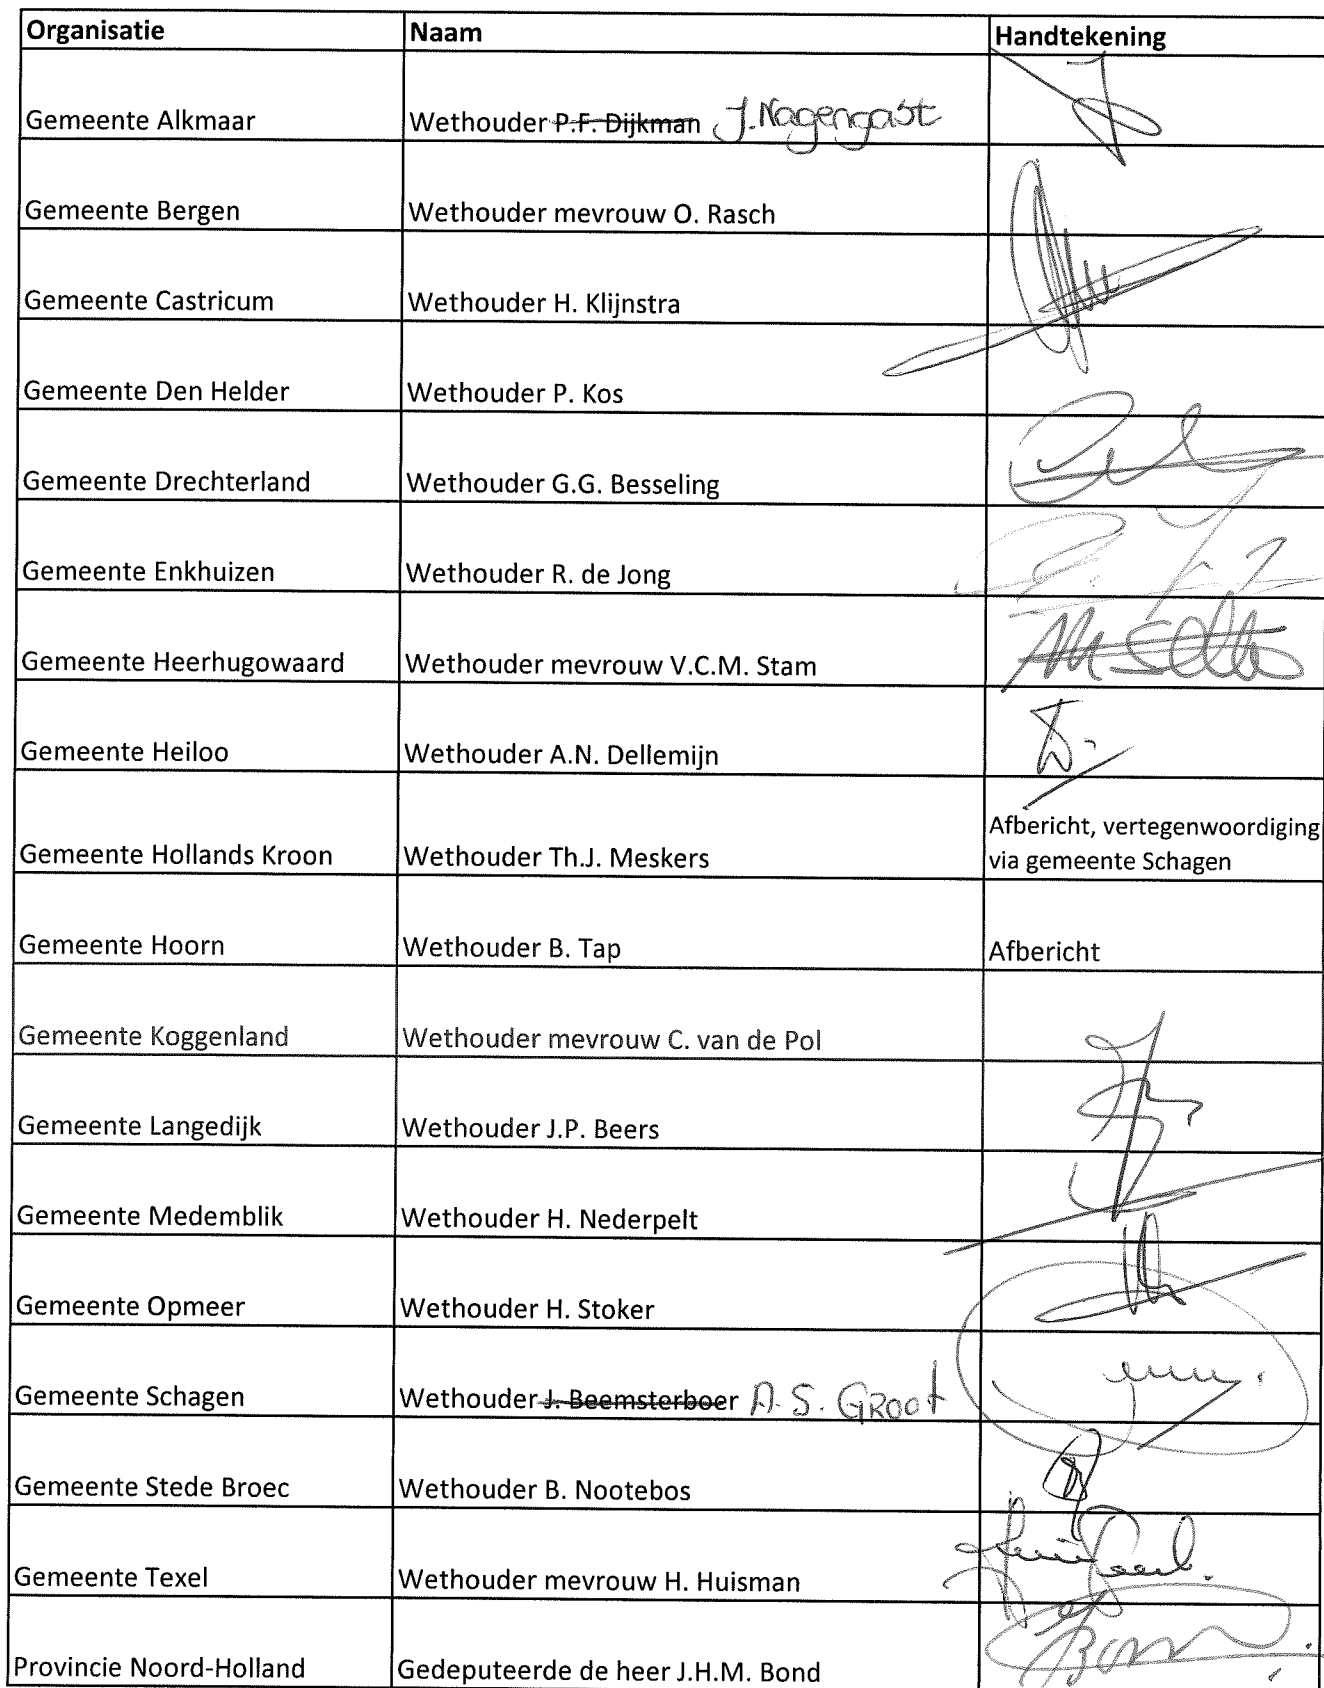 Organisatie Naam Handtekening
Gemeente Alkmaar Wethouder P.F. Dijkman J. Nagengast
Gemeente Bergen Wethouder mevrouw O. Rasch
Gemeente Castricum Wethouder H. Klijnstra
Gemeente Den Helder Wethouder P. Kos
Gemeente Drechterland Wethouder G.G. Besseling
Gemeente Enkhuizen Wethouder R. de Jong
Gemeente Heerhugowaard Wethouder mevrouw V.C.M. Stam
Gemeente Heiloo Wethouder A.N. Dellemijn
Afbericht, vertegenwoordiging
Gemeente Hollands Kroon Wethouder Th.J. Meskers via gemeente Schagen
Gemeente Hoorn Wethouder B. Tap Afbericht
Gemeente Koggenland Wethouder mevrouw C. van de Pol
Gemeente Langedijk Wethouder J.P. Beers
Gemeente Medemblik Wethouder H. Nederpelt
Gemeente Opmeer Wethouder H. Stoker
Gemeente Schagen Wethouder J. Beemsterboer A.S. GROOT
Gemeente Stede Broec Wethouder B. Nootebos
Gemeente Texel Wethouder mevrouw H. Huisman
Provincie Noord-Holland Gedeputeerde de heer J.H.M. Bond